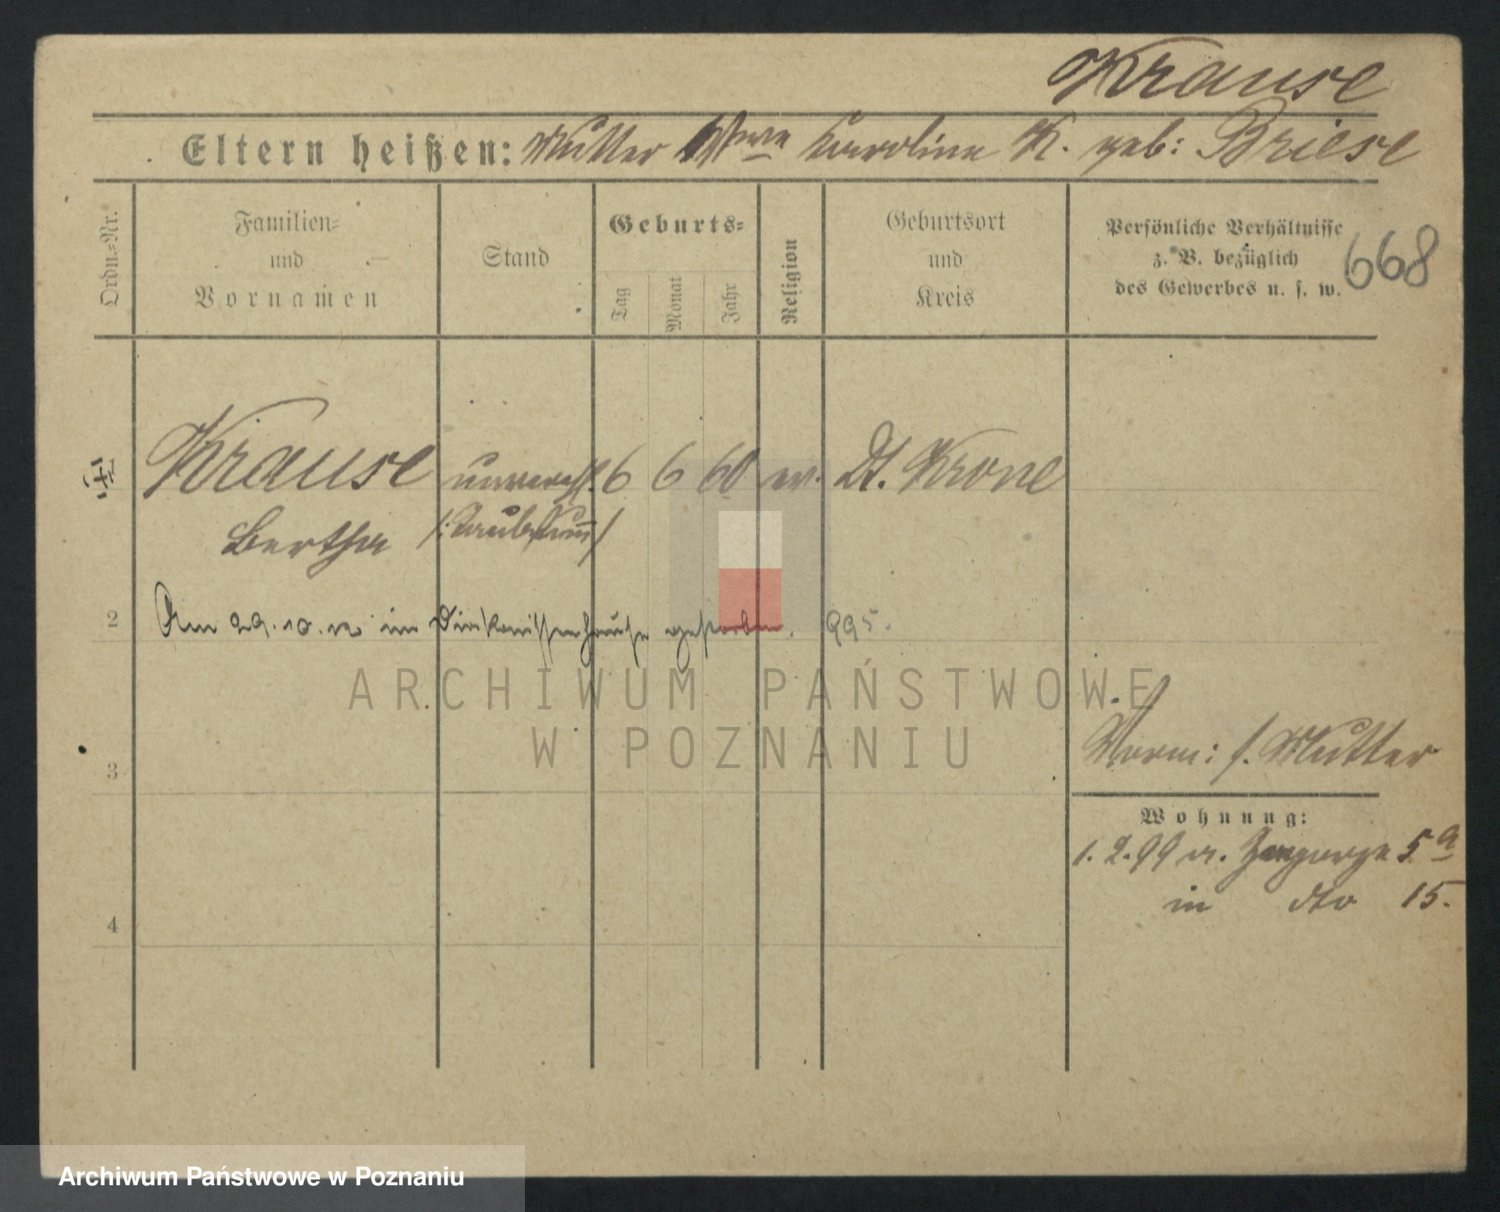 Krause
Eltern heißen: Mutter Wwe Karoline K. geb: Briese
Ordn.=Nr.
Familien=
und
Vornamen
Stand
Geburts=
Tag
Monat
Jahr
Religion
Geburtsort
und
Kreis
Persönliche Verhältnisse
z. B. bezüglich
des Gewerbes u. s. w.
668
1 Krause unvereh. 6 6 60 ev. Dt. Krone
Bertha /:Taubstumm/
2 Am 29.10.12 im Diakonissenhause gestorben. 995.
ARCHIWUM PAŃSTWOWE
W POZNANIU
3
Vorm: s. Mutter
Wohnung:
1.2.99 a. 5a
in dto 15.
4
Archiwum Państwowe w Poznaniu